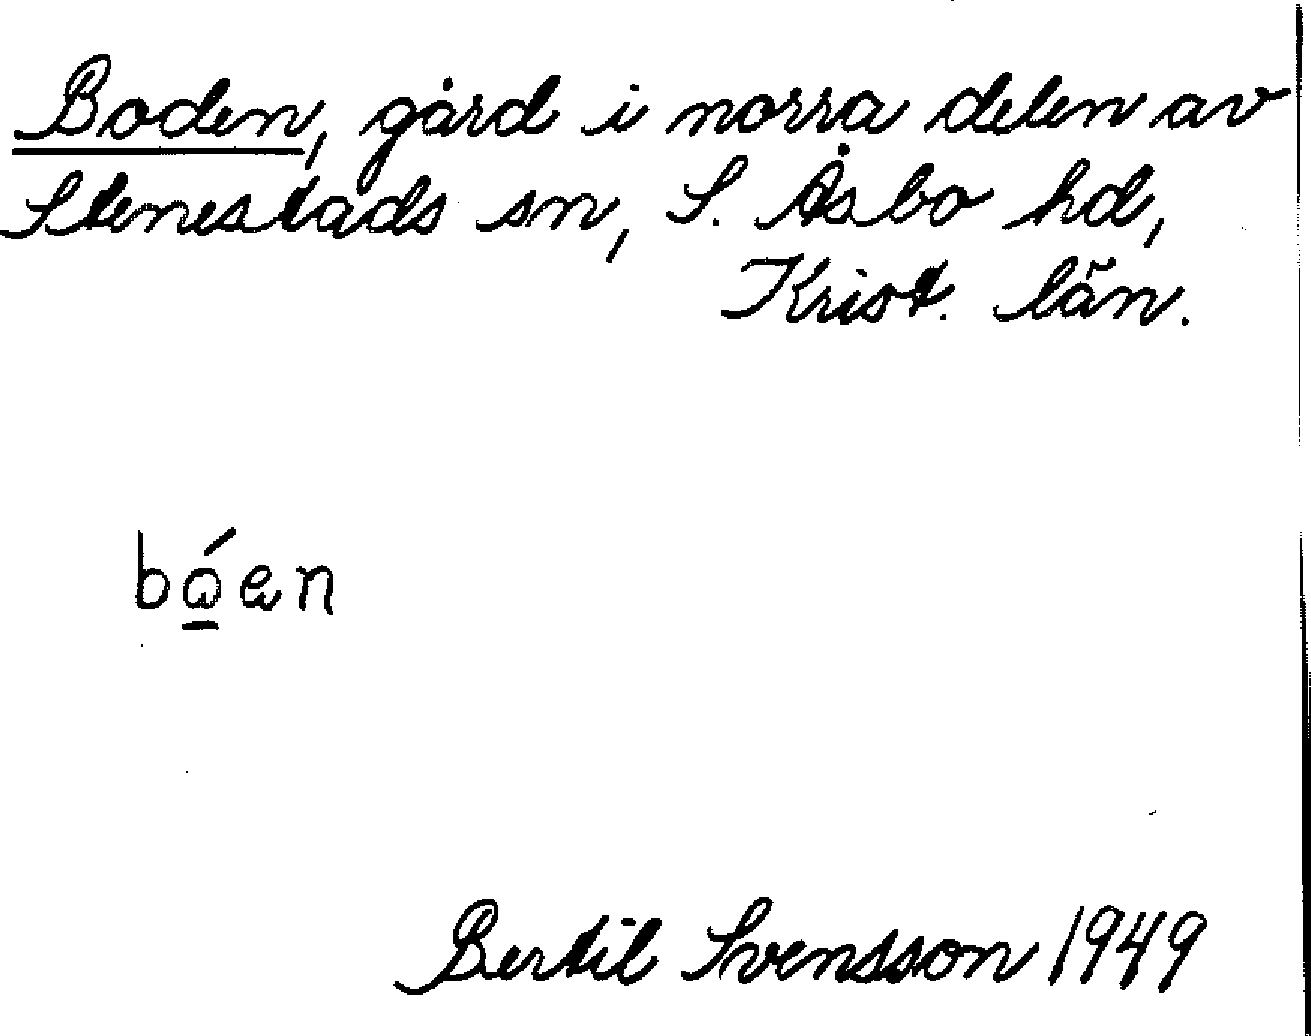 Boden, gård i norra delen av
Stenestads sn, S. Åsbo hd,
Krist. län.
bóen
Bertil Svensson 1949